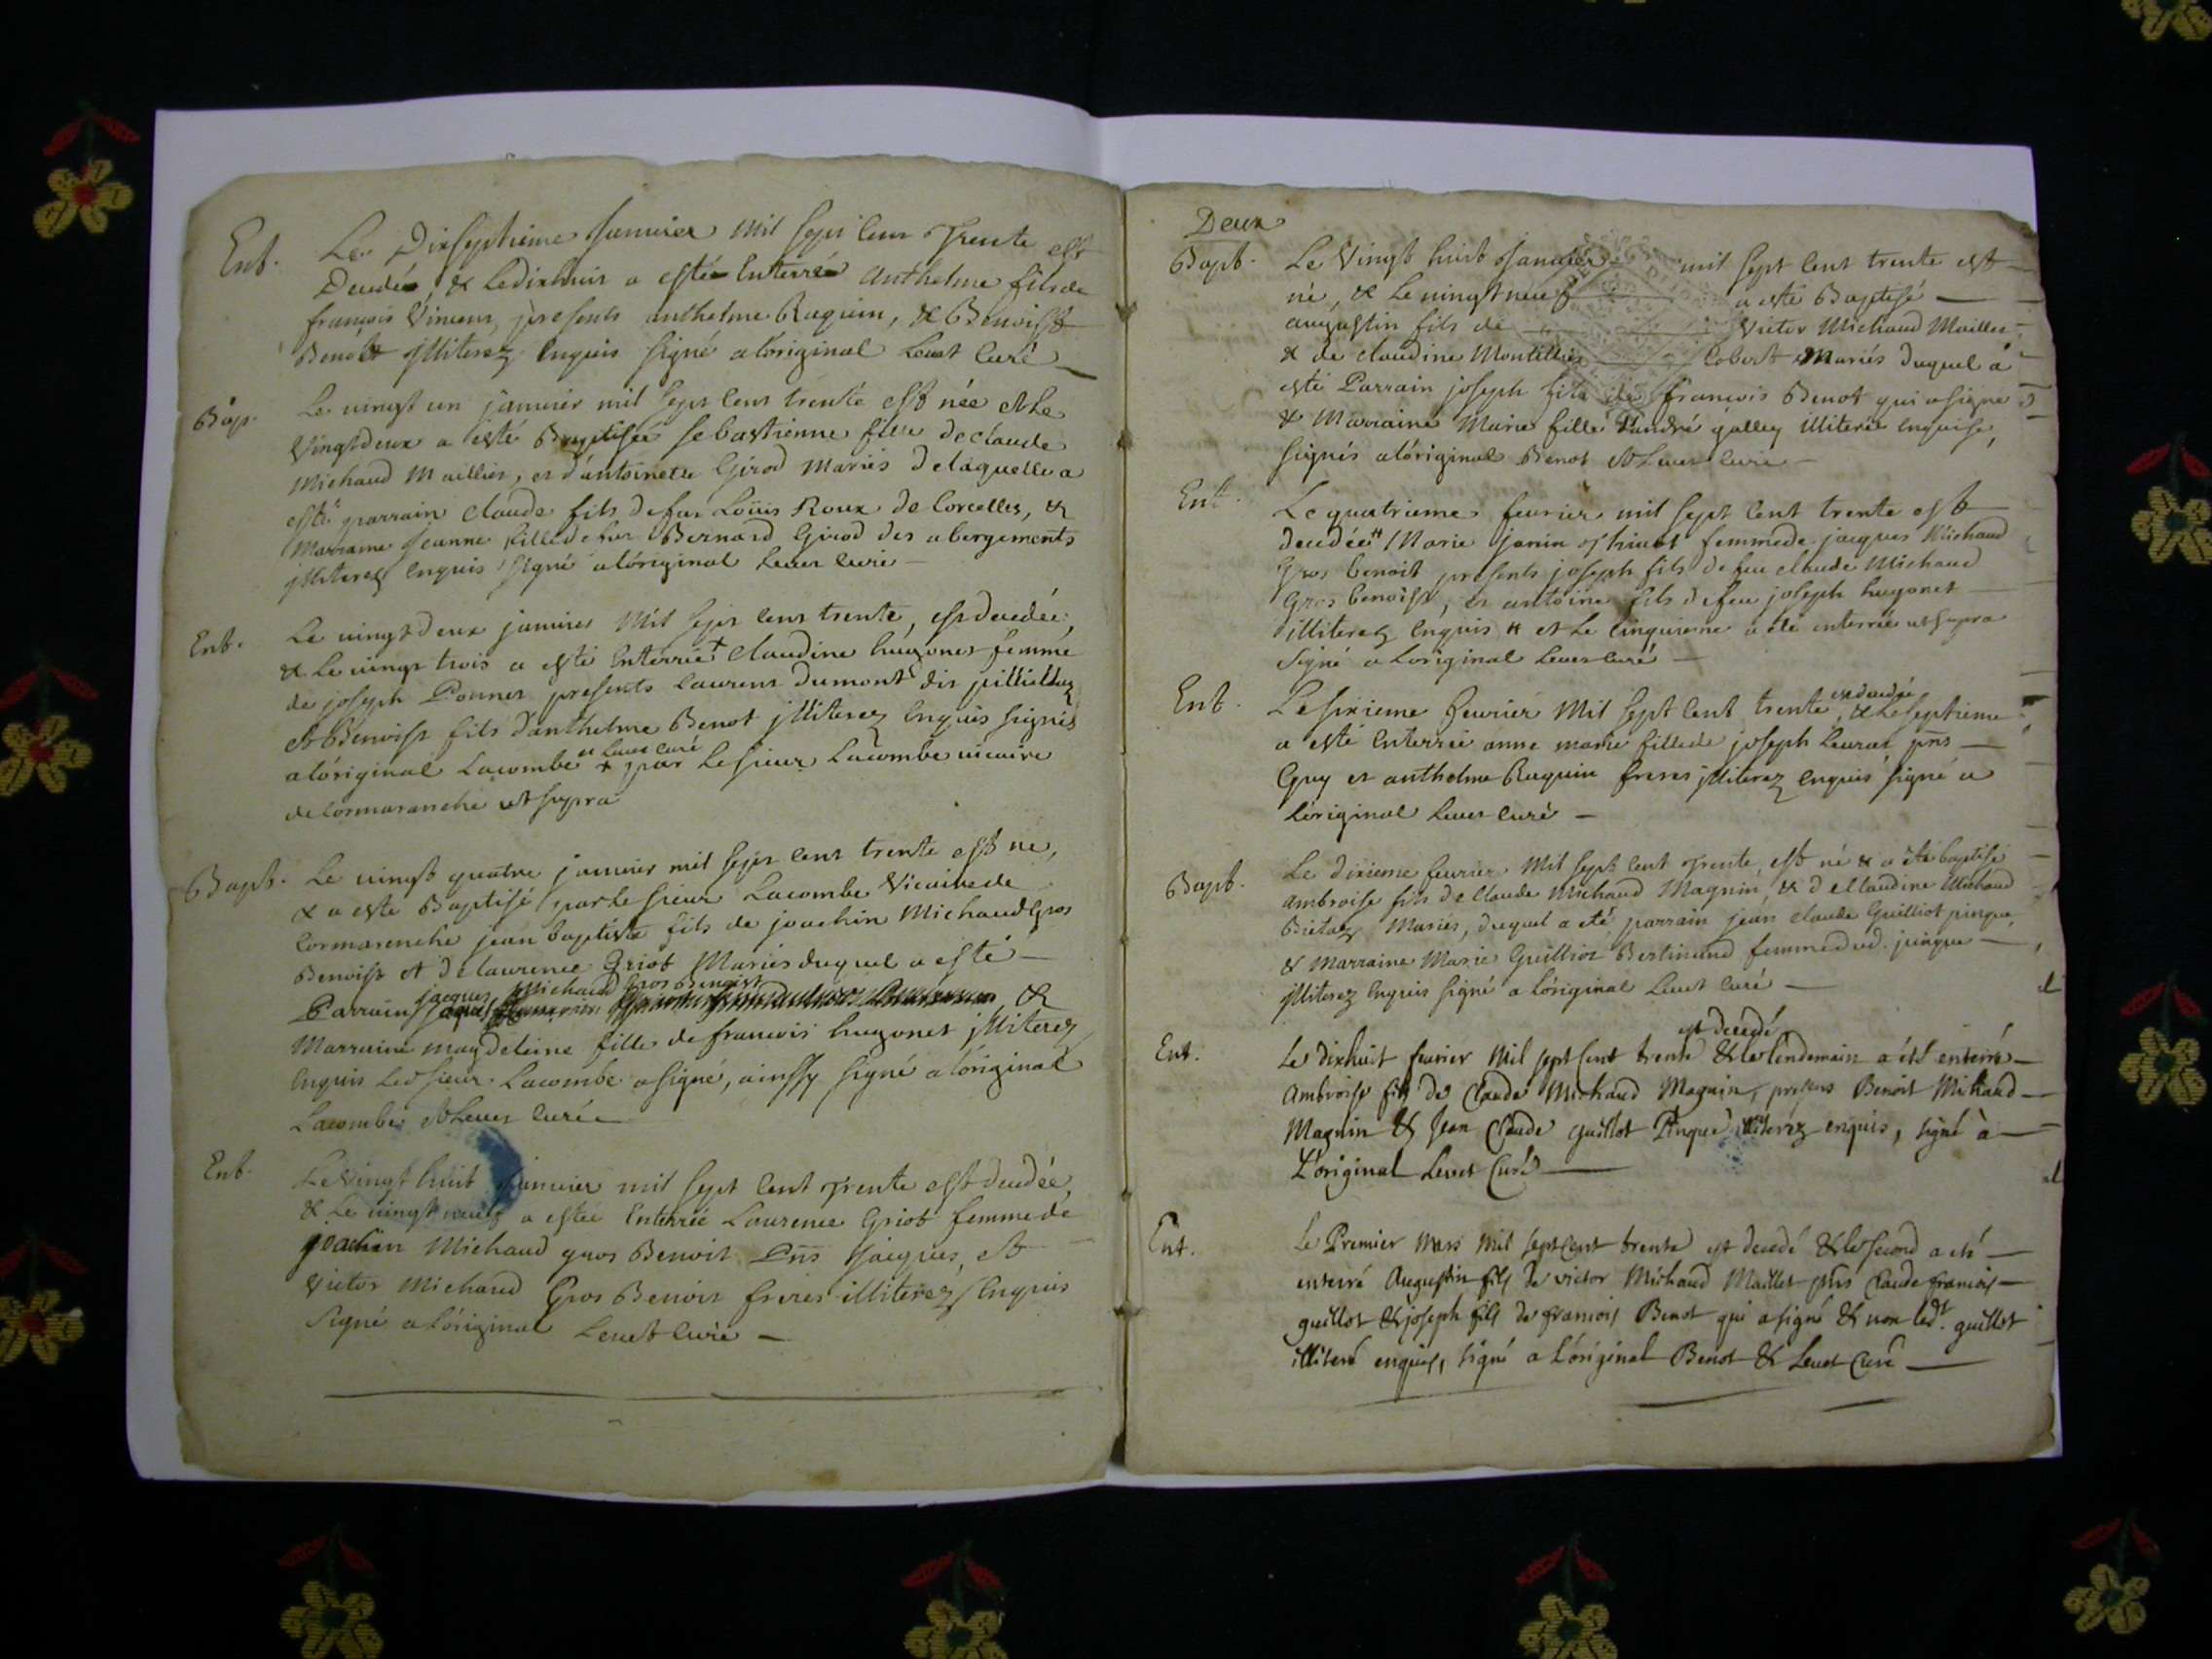 Ent. Le Dixseptieme Januier mil sept cent Trente est
Decedé, & le dixhuit a esté Enterré Anthelme fils de
françois Vincent, presents anthelme Ruquin, & Benoist
Benot illiterez Enquis signé a loriginal Leuet Curé
Bap. Le vingt un januier mil sept cent trente est née et le
Vingtdeux a esté Baptisée sebastienne fille de claude
Michaud Maillier, et d'antoinette Girod Mariés de laquelle a
esté parrain Claude fils de feu Loüis Roux de Corcelles, &
Marraine Jeanne fille de feu Bernard Girod des abergements
illiterez Enquis signé a lóriginal Leuet Curé
Ent. Le vingtdeux januier Mil sept cent trente, est decedée,
& le vingt trois a esté Enterrée + claudine hugonet femme
de joseph Ponnet presents laurent Dumont dit
et Benoist fils d'anthelme Benot illiterez Enquis signés
a lóriginal Lacombe et Leuet curé + par le sieur Lacombe vicaire
de Cormaranche ut supra
Bapt. Le vingt quatre januier mil sept cent trente est né,
& a esté Baptisé par le sieur Lacombe Vicaire de
Cormarenche jean baptiste fils de joachin Michaud gros
Benoist et de laurence Griot Mariés duquel a esté
jacques Michaud Gros Benoist
Parrain &
Marraine magdeleine fille de francois hugonet illiterez
Enquis Led sieur Lacombe a signé, ainssy signé a lóriginal
Lacombe et Leuet Curé
Ent. Le Vingt huit januier mil sept cent Trente est decedée
& Le vingt neuf a estée Enterrée Laurence Griot femme de
joachin Michaud gros Benoit pns jacques, et
Victor Michaud Gros Benoit freres illiterez Enquis
Signé a lóriginal Leuet Curé
Deux
Bapt. Le Vingt huit Januier mil sept cent trente est
né, & le vingt neuf a esté Baptisé
augustin fils de Victor Michaud Maillet
& de claudine Montillier Mariés duquel a
esté Parrain joseph fils de francois Benot qui a signé
& Marraine Marie fille d'andré galley illiterée enquise,
signés a lóriginal Benot et Leuet Curé
Ent. Le quatrieme feurier mil sept cent trente est
decedée # Marie janin femme de jacques Michaud
Gros benoit presents joseph fils de feu claude Michaud
Gros benoist, et antoine fils de feu joseph hugonet
illiterez Enquis # et Le Cinquieme a été enterrée ut supra
Signé a loriginal Leuet Curé
Ent. Le sixieme feurier Mil sept cent trente est decedée, & le septieme
a esté Enterrée anne marie fille de joseph Leurat pns
Guy et anthelme Ruquin freres illiterez enquis signé a
Lóriginal Leuet Curé
Bapt. Le Dixieme feurier Mil sept cent Trente, est né & a été baptisé
ambroise fils de Claude Michaud Magnin, & de Claudine Michaud
Bietaz Mariés, duquel a eté parrain jean claude Guilliot pinque
& Marraine Marie Guilliot Bertinand femme dud. pinque
illiterez Enquis signé a lóriginal Leuet Curé
est decedé
Ent. Le dixhuit feurier Mil sept cent trente & le lendemain a été enterré
Ambroise fils de Claude Michaud Magnin, presens Benoit Michaud
Magnin & Jean Claude guillot Pinque illiteréz enquis, signé à
L'original Leuet Curé
Ent. Le Premier Mars Mil sept cent trente est decedé & le second a eté
enterré Augustin fils de victor Michaud Maillet pns Claude francois
guillot & joseph fils de francois Benot qui a signé & non ledt. guillot
illiteré enquis, signé a lóriginal Benot & Leuet Curé